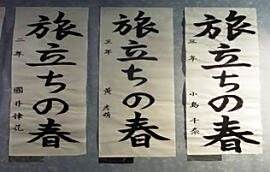 旅立ちの春
三年 小島 千奈
旅立ちの春
三年 黄
旅立ちの春
二年 國井